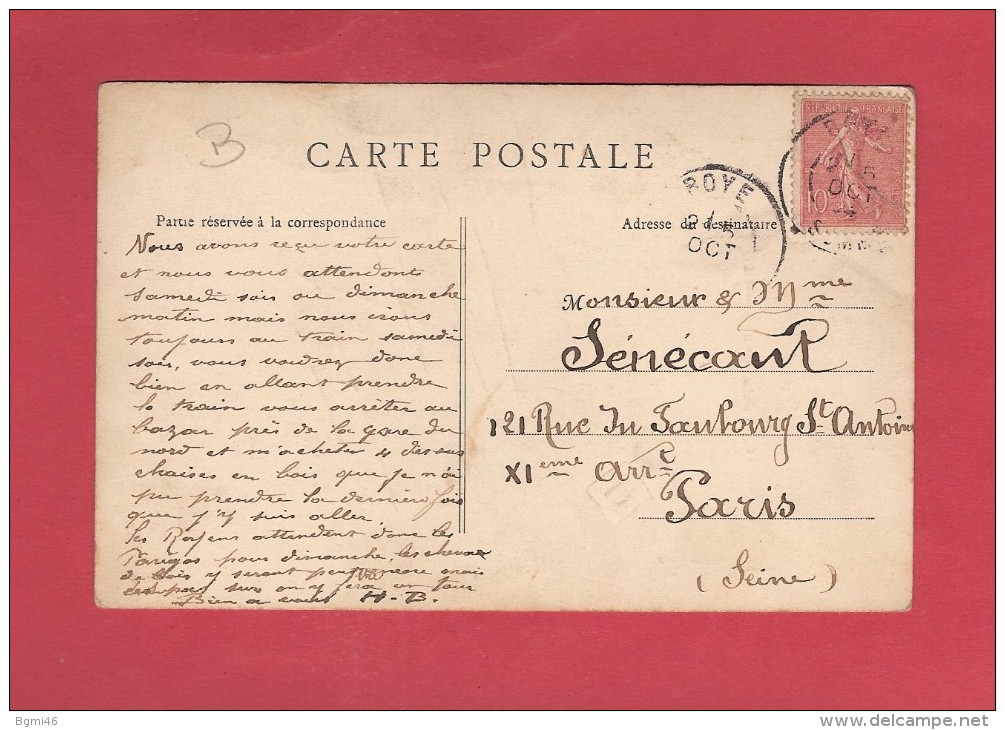 B
CARTE POSTALE
REPUBLIQUE FRANÇAISE
10
ROYE
OCT
Partie réservée à la correspondance
Adresse du destinataire
Nous avons reçu votre carte
et nous vous attendons
samedi soir ou dimanche
matin mais nous irons
toujours au train samedi
soir, vous voudrez donc
bien en allant prendre
le train vous arrêter au
bazar près de la gare du
nord et m'acheter 4 dessus
chaises en bois que je n'ai
pu prendre la dernière fois
que j'y suis allée.
les Royens attendent donc les
Parigos pour dimanche, les chevaux
de bois y seront peut
on y fera un tour
Bien à vous H. B.
Monsieur & Mme
Sénécaut
121 Rue du Faubourg St Antoine
XIeme Arre
Paris
(Seine)
Bgmi46
www.delcampe.net